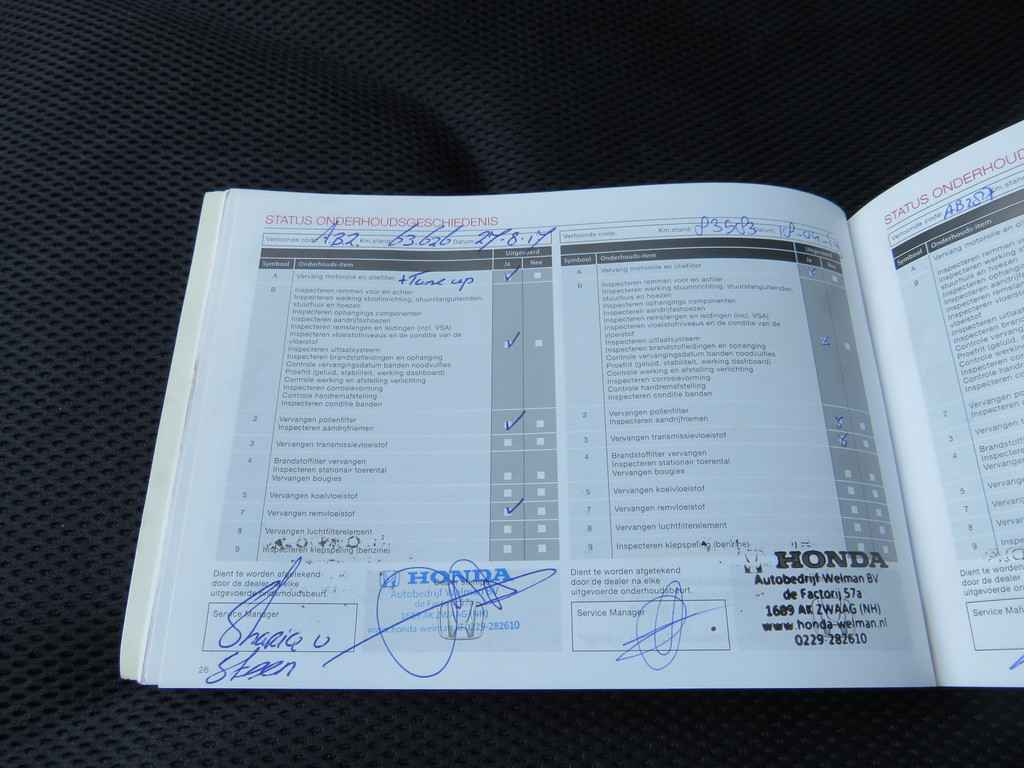 STATUS ONDERHOUDSGESCHIEDENIS
Vertoonde code: AB2. Km.stand: 63.626 Datum: 27-8-17
Uitgevoerd
Symbool Onderhouds-item Ja Nee
A Vervang motorolie en oliefilter + Tune up
B Inspecteren remmen voor en achter
Inspecteren werking stuurinrichting, stuurstangeinden,
stuurhuis en hoezen
Inspecteren ophangings componenten
Inspecteren aandrijfashoezen
Inspecteren remslangen en leidingen (incl. VSA)
Inspecteren vloeistofniveaus en de conditie van de
vloeistof
Inspecteren uitlaatsysteem
Inspecteren brandstofleidingen en ophanging
Controle vervangingsdatum banden noodvulfles
Proefrit (geluid, stabiliteit, werking dashboard)
Controle werking en afstelling verlichting
Inspecteren corrosievorming
Controle handremafstelling
Inspecteren conditie banden
2 Vervangen pollenfilter
Inspecteren aandrijfriemen
3 Vervangen transmissievloeistof
4 Brandstoffilter vervangen
Inspecteren stationair toerental
Vervangen bougies
5 Vervangen koelvloeistof
7 Vervangen remvloeistof
8 Vervangen luchtfilterelement
9 Inspecteren klepspeling (benzine)
Dient te worden afgetekend
door de dealer na elke
uitgevoerde onderhoudsbeurt.
Service Manager
HONDA
Autobedrijf Welman BV
de Factorij 57a
1689 AK ZWAAG (NH)
www.honda-welman.nl
0229-282610
26
Vertoonde code: Km.stand: 83583 Datum:
Uitgevoerd
Symbool Onderhouds-item Ja Nee
A Vervang motorolie en oliefilter
B Inspecteren remmen voor en achter
Inspecteren werking stuurinrichting, stuurstangeinden,
stuurhuis en hoezen
Inspecteren ophangings componenten
Inspecteren aandrijfashoezen
Inspecteren remslangen en leidingen (incl. VSA)
Inspecteren vloeistofniveaus en de conditie van de
vloeistof
Inspecteren uitlaatsysteem
Inspecteren brandstofleidingen en ophanging
Controle vervangingsdatum banden noodvulfles
Proefrit (geluid, stabiliteit, werking dashboard)
Controle werking en afstelling verlichting
Inspecteren corrosievorming
Controle handremafstelling
Inspecteren conditie banden
2 Vervangen pollenfilter
Inspecteren aandrijfriemen
3 Vervangen transmissievloeistof
4 Brandstoffilter vervangen
Inspecteren stationair toerental
Vervangen bougies
5 Vervangen koelvloeistof
7 Vervangen remvloeistof
8 Vervangen luchtfilterelement
9 Inspecteren klepspeling (benzine)
Dient te worden afgetekend
door de dealer na elke
uitgevoerde onderhoudsbeurt.
Service Manager
HONDA
Autobedrijf Welman BV
de Factorij 57a
1689 AK ZWAAG (NH)
www.honda-welman.nl
0229-282610
STATUS ONDERHOUD
Vertoonde code:
Symbool Onderhouds-item